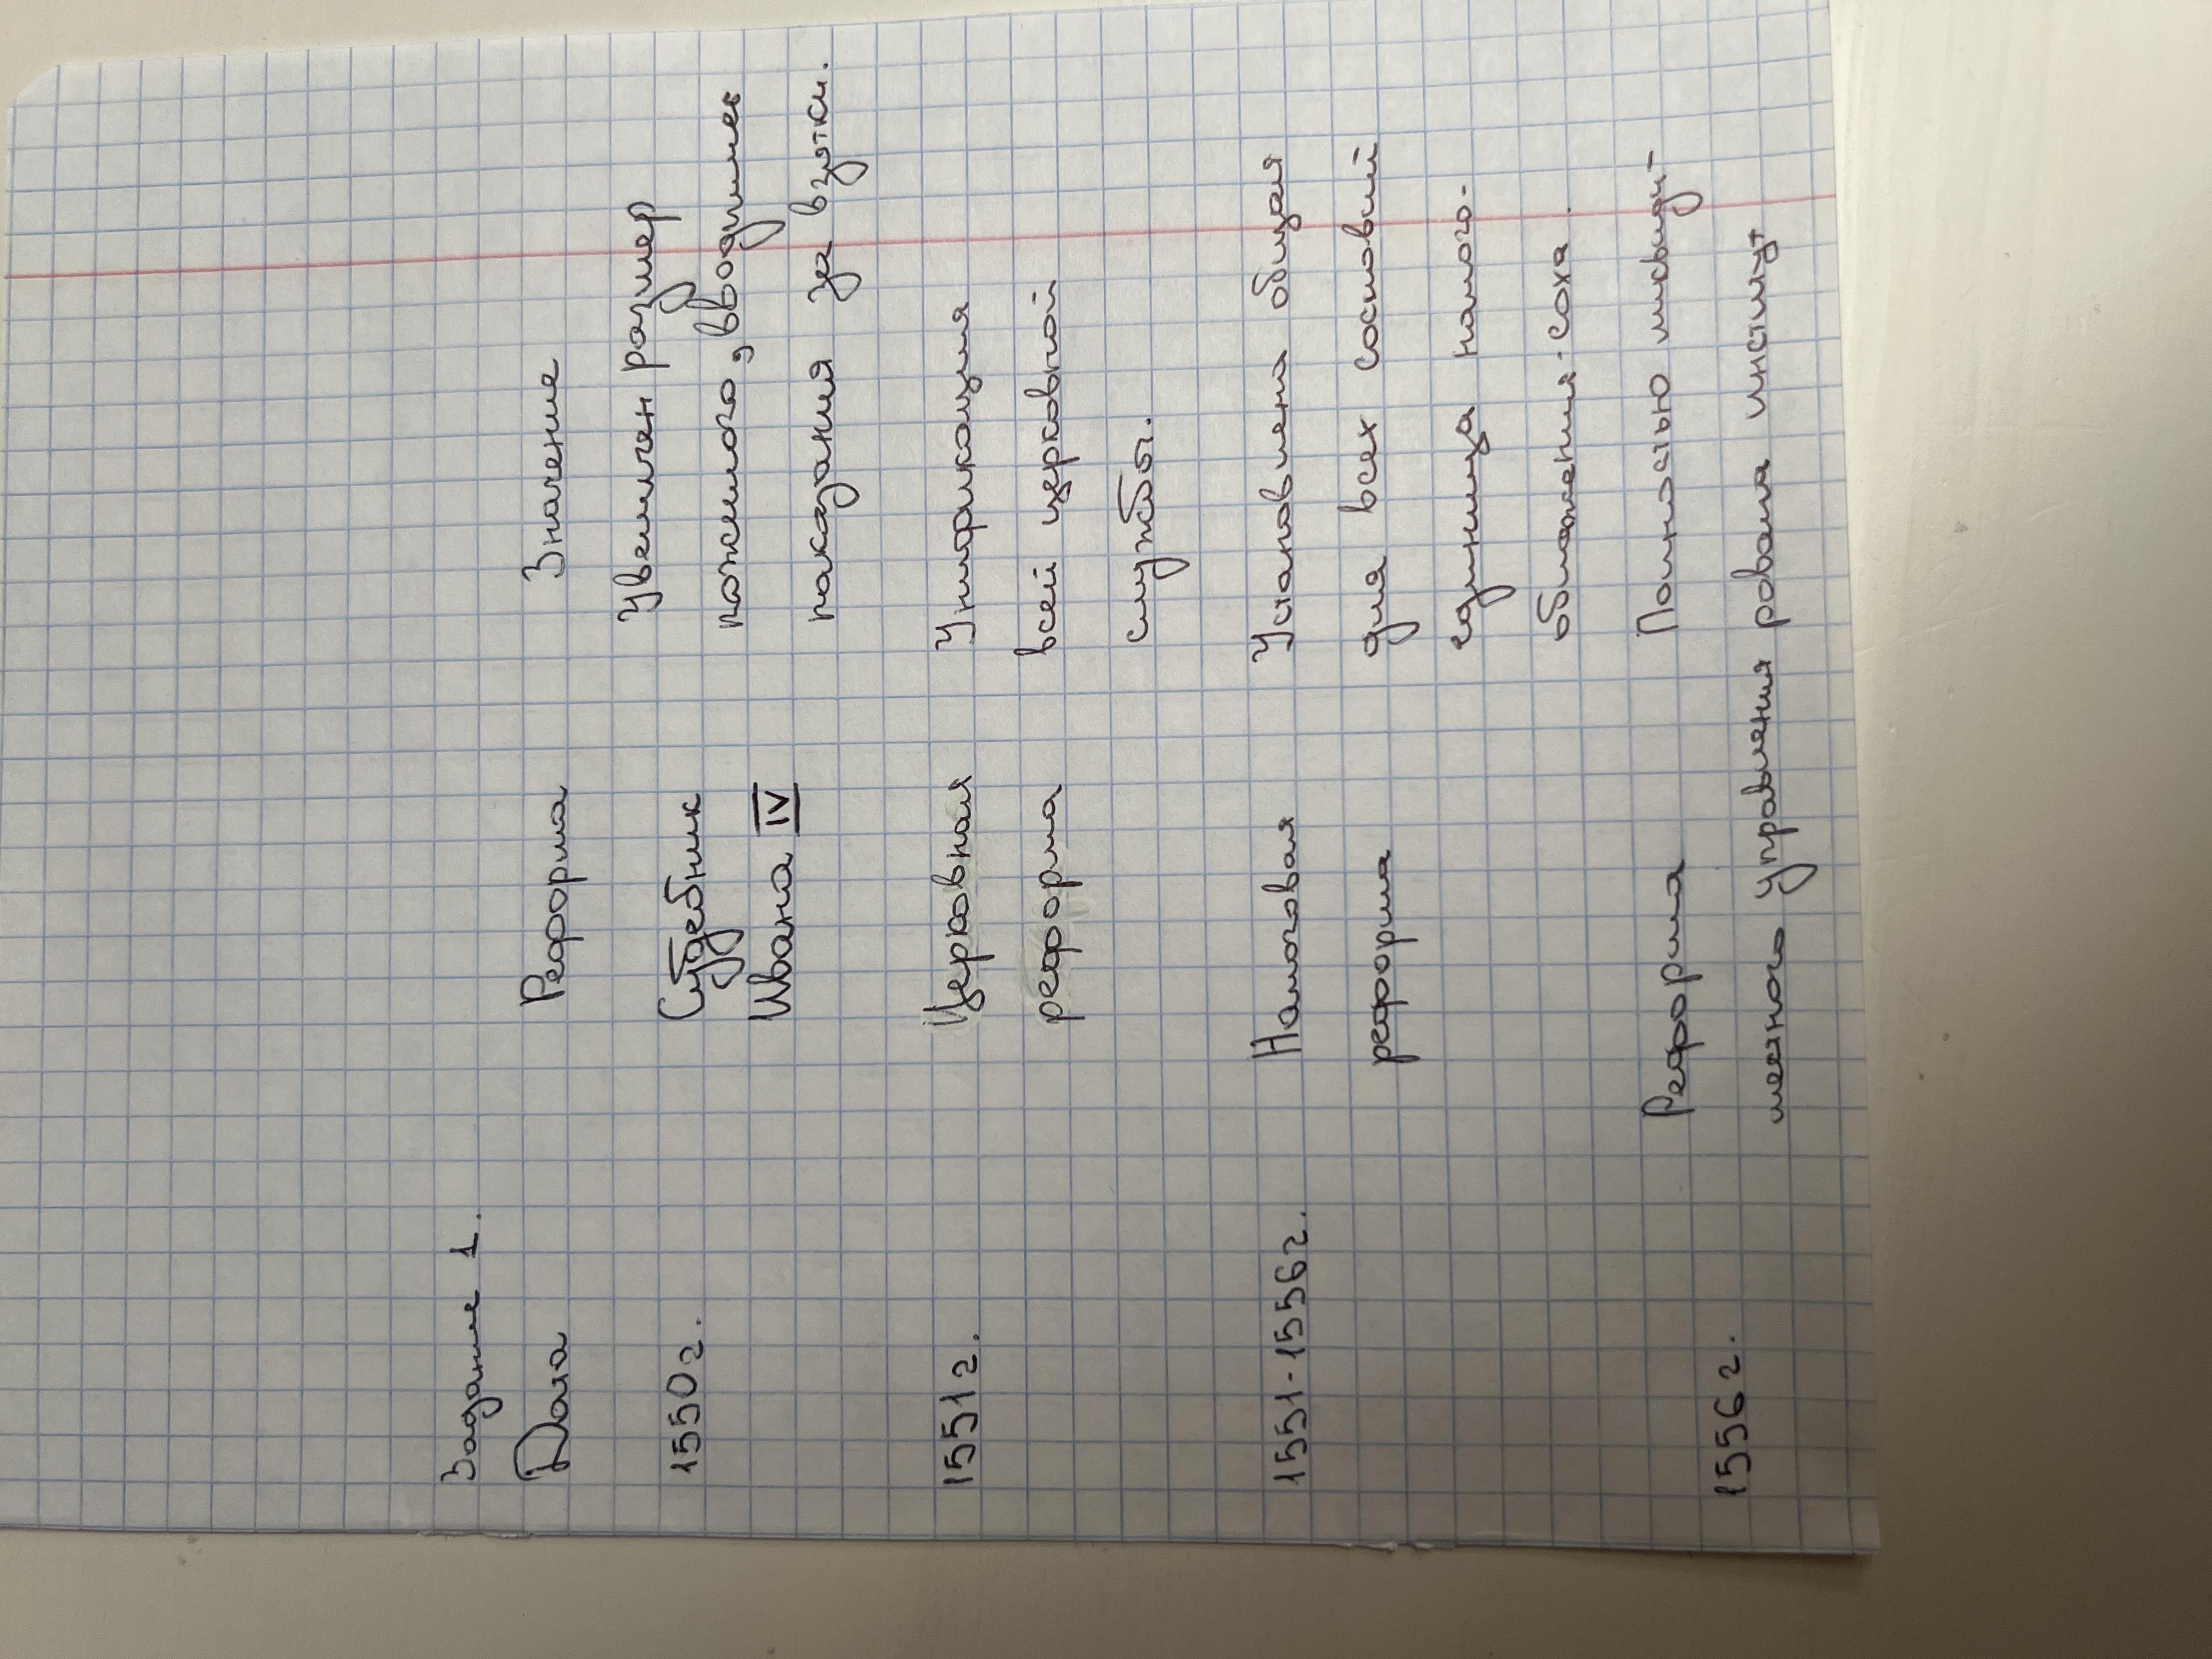 Задание 1.
Дата Реформа Значение
Увеличен размер
1550г. Судебник пожилого, вводились
Ивана IV наказания за взятки.
1551г. Церковная Унификация
реформа всей церковной
службы.
1551-1556г. Налоговая Установлена общая
реформа для всех сословий
единица налого-
обложения-соха.
1556г. Реформа Полностью ликвиди-
местного управления рована институт